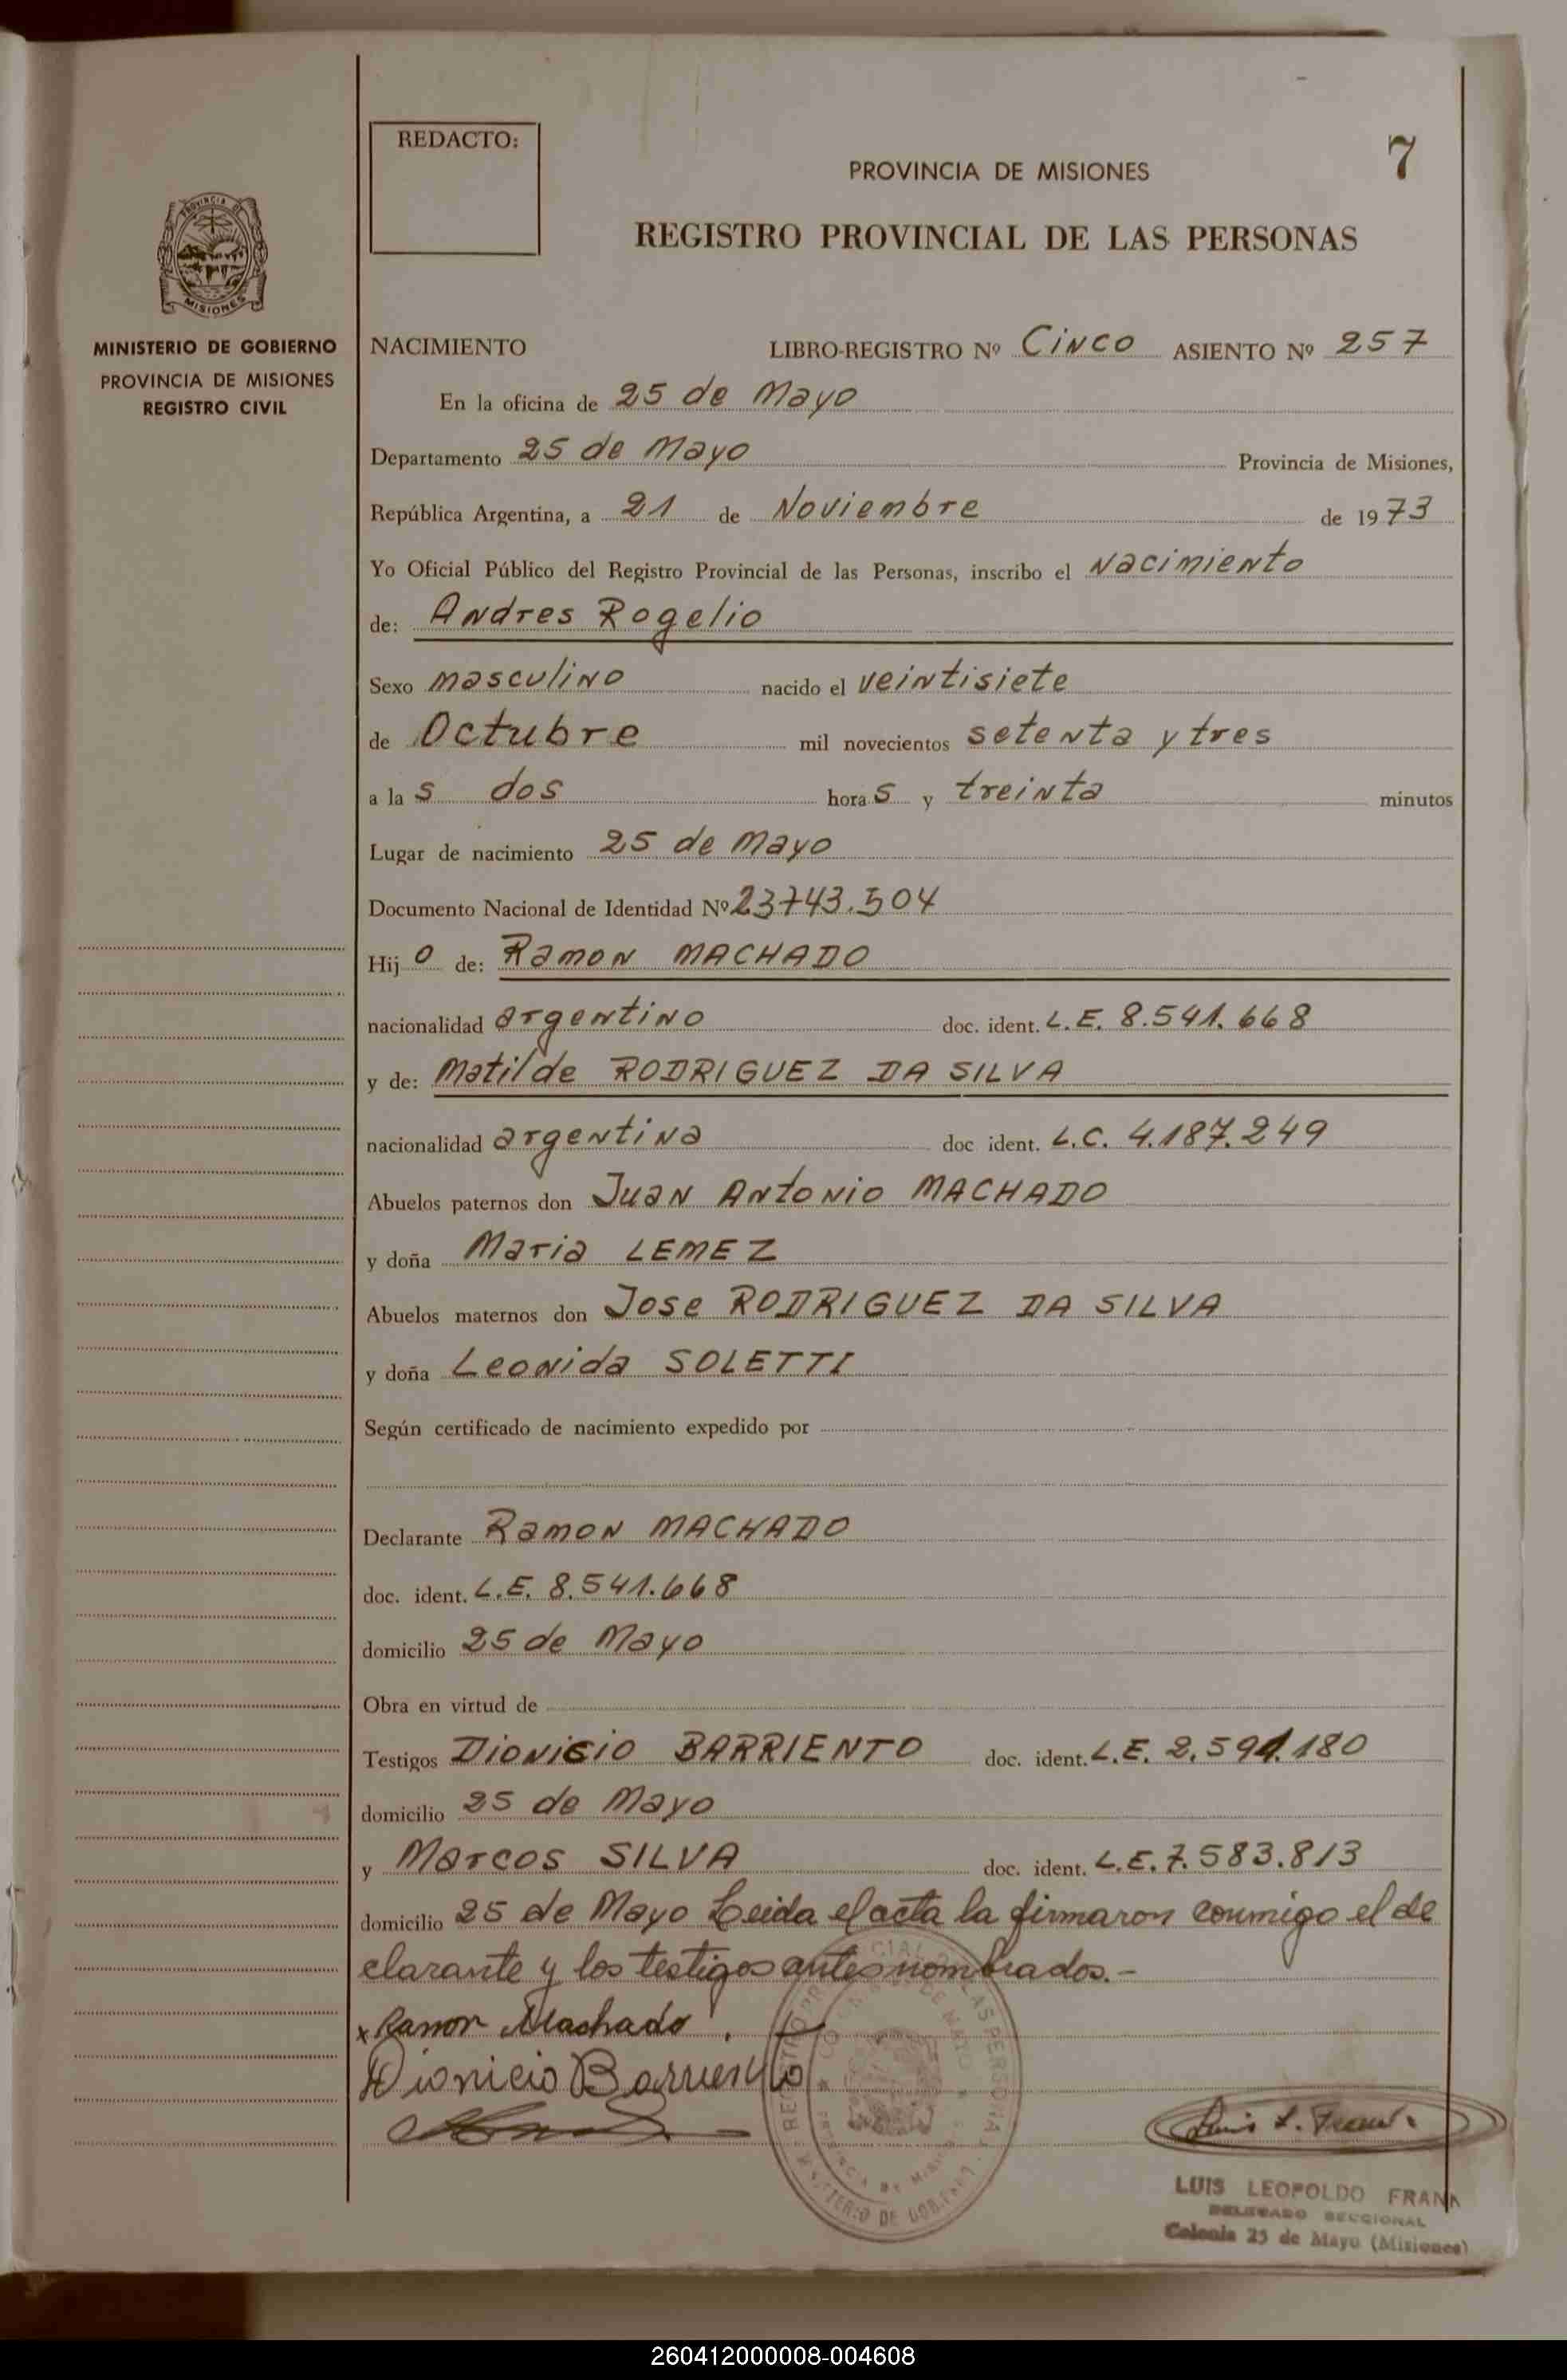 REDACTO:
7
PROVINCIA DE MISIONES
REGISTRO PROVINCIAL DE LAS PERSONAS
PROVINCIA DE
MISIONES
MINISTERIO DE GOBIERNO
PROVINCIA DE MISIONES
REGISTRO CIVIL
NACIMIENTO LIBRO-REGISTRO Nº Cinco ASIENTO Nº 257
En la oficina de 25 de Mayo
Departamento 25 de Mayo Provincia de Misiones,
República Argentina, a 21 de Noviembre de 1973
Yo Oficial Público del Registro Provincial de las Personas, inscribo el Nacimiento
de: Andres Rogelio
Sexo masculino nacido el veintisiete
de Octubre mil novecientos setenta y tres
a las dos horas y treinta minutos
Lugar de nacimiento 25 de Mayo
Documento Nacional de Identidad Nº 23743.504
Hijo de: Ramon MACHADO
nacionalidad argentino doc. ident. L.E. 8.541.668
y de: Matilde RODRIGUEZ DA SILVA
nacionalidad argentina doc ident. L.C. 4.187.249
Abuelos paternos don Juan Antonio MACHADO
y doña Maria LEMEZ
Abuelos maternos don Jose RODRIGUEZ DA SILVA
y doña Leonida SOLETTI
Según certificado de nacimiento expedido por
Declarante Ramon MACHADO
doc. ident. L.E. 8.541.668
domicilio 25 de Mayo
Obra en virtud de
Testigos Dionicio BARRIENTO doc. ident. L.E. 2.591.180
domicilio 25 de Mayo
y Marcos SILVA doc. ident. L.E. 7.583.813
domicilio 25 de Mayo Leida el acta la firmaron conmigo el de
clarante y los testigos antes nombrados.-
x Ramon Machado
Dionicio Barriento
Luis L. Frank
LUIS LEOPOLDO FRANK
DELEGADO SECCIONAL
Colonia 25 de Mayo (Misiones)
260412000008-004608